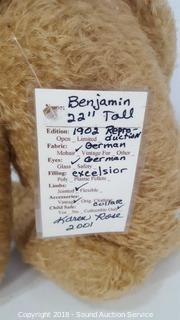 Benjamin
22" Tall
Edition: 1902 Repro-
Open Limited duction
Fabric: ✓ German
Mohair Vintage Fur Other
Eyes: ✓ German
Glass Safety
Filling: excelsior
Poly Plastic Pellets
Limbs:
Jointed ✓ Flexible
Accessories:
Vintage Orig. collar
Child Safe:
Yes No Collectible Only
Karen Rose
2001
Copyright 2018 - Sound Auction Service